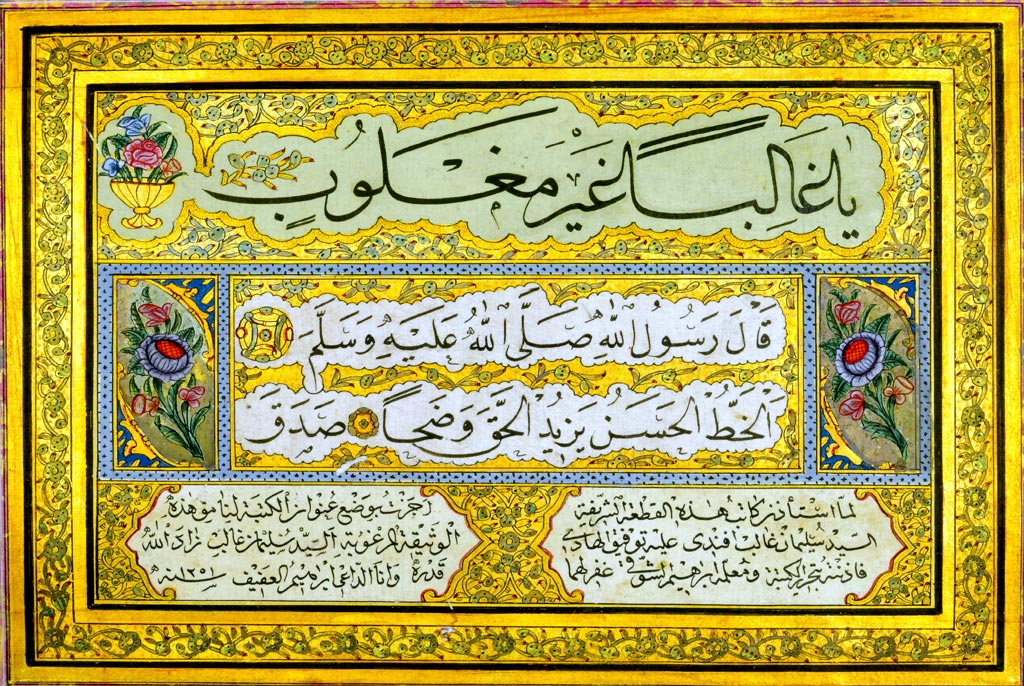 يا غَالِبًا غَيْرَ مَغْلُوبٍ
قَالَ رَسُولُ اللهِ صَلَّى اللهُ عَلَيْهِ وَسَلَّمَ
اَلْخَطُّ الْحَسَنُ يَزِيدُ الْحَقَّ وَضَحًا صَدَقَ
لما استأذن كاتب هذه القطعة الشريفة
السيد سليمان غالب افندى عليه توفيق الهادي
فاذنته بتحرير الكتبة ومعلمه ابراهيم الشوقي غفر لهما
اجزت بوضع عنوان الكتبة لنامق هذه
الوثيقة المرغوبة السيد سليمان غالب زاد الله
قدره وانا الداعي ابراهيم العفيف سنة ١٢٥١